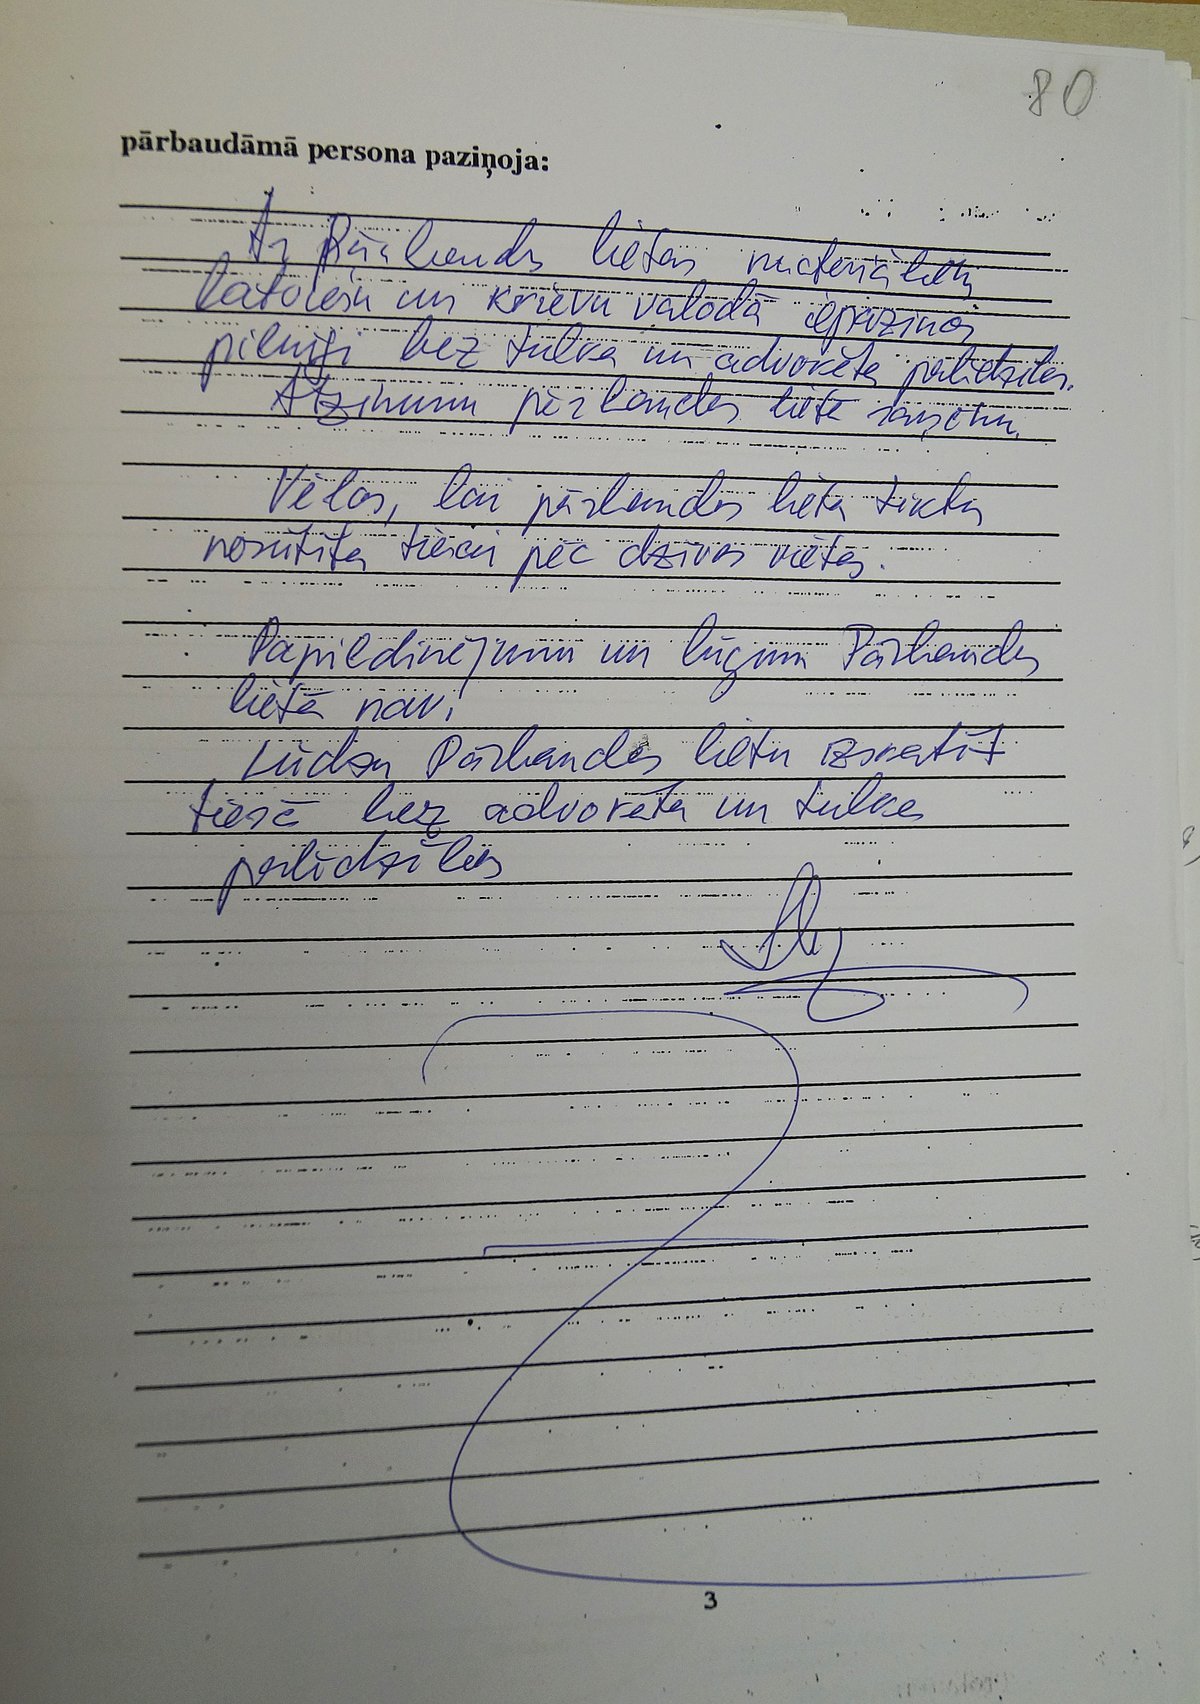 80
pārbaudāmā persona paziņoja:
Ar Pārbaudes lietas materiāliem
latviešu un krievu valodā iepazinos
pilnīgi bez tulka un advokāta palīdzības.
Atzinumu pārbaudes lietā saņēmu.
Vēlos, lai pārbaudes lieta tiktu
nosūtīta tiesai pēc dzīves vietas.
Papildinājumu un lūgumu Pārbaudes
lietā nav.
Lūdzu Pārbaudes lietu izskatīt
tiesā bez advokāta un tulka
palīdzības
3